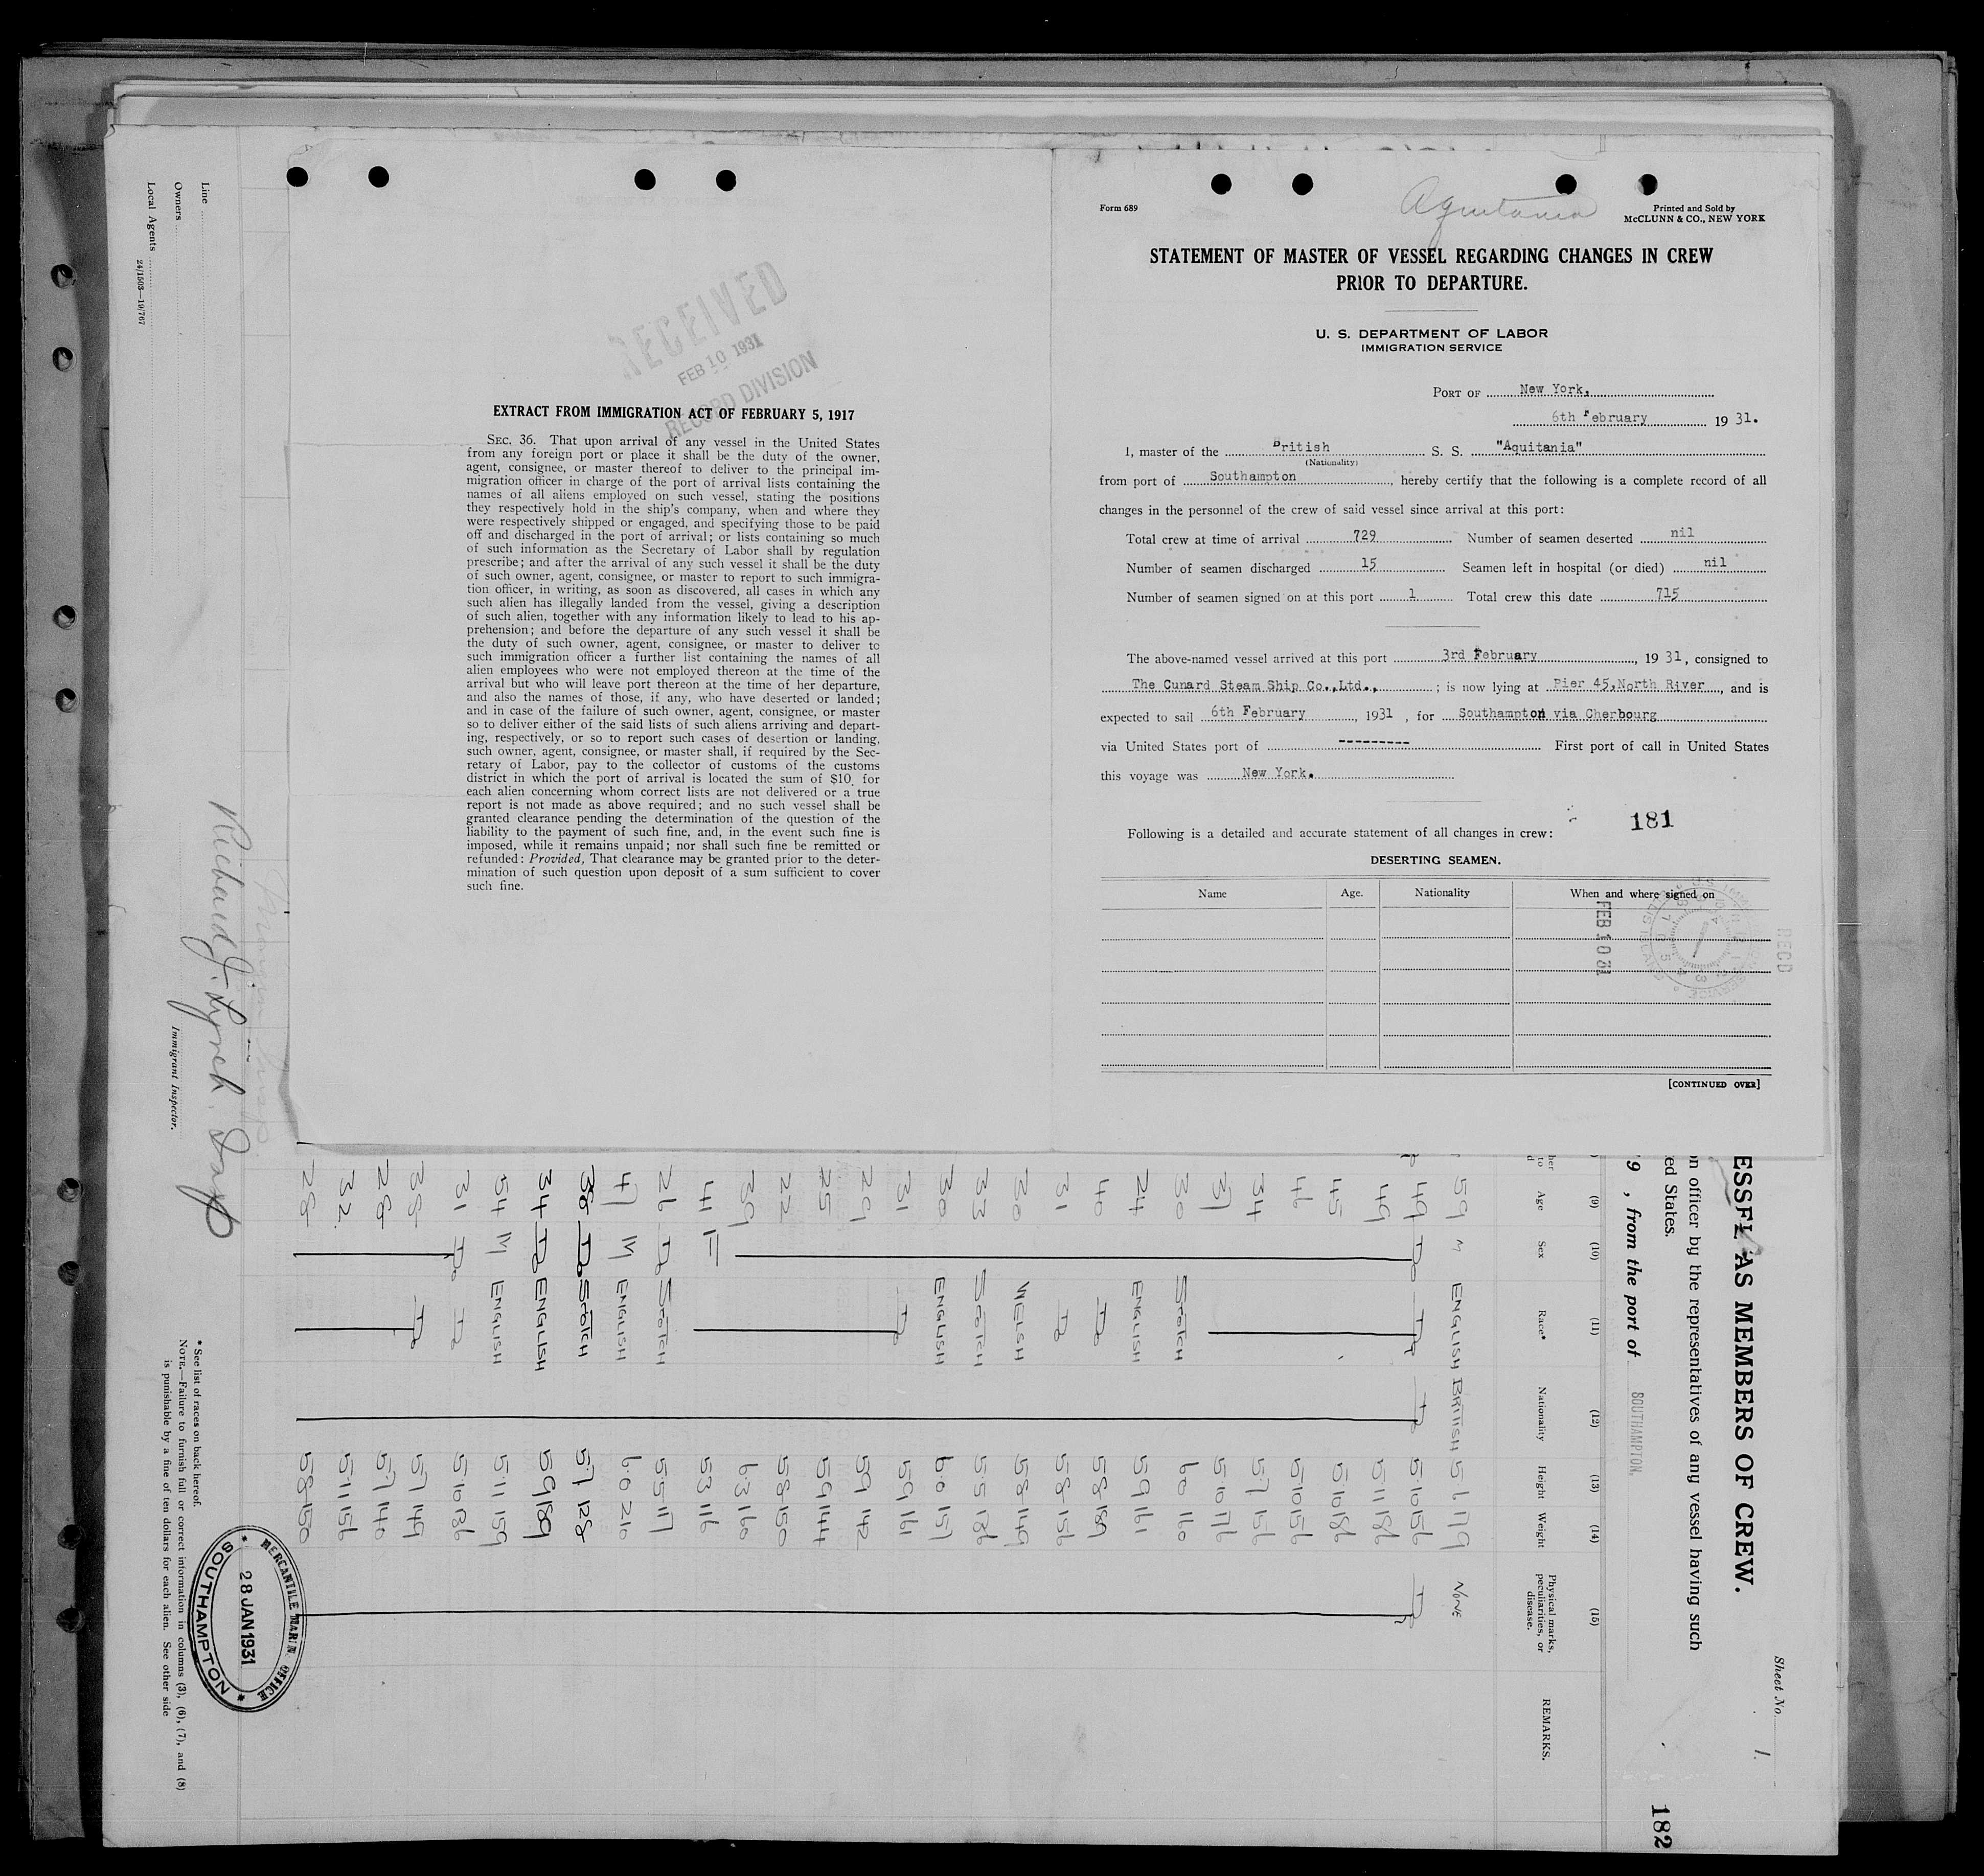 Aquitania
Form 689
Printed and Sold by
McCLUNN & CO., NEW YORK
STATEMENT OF MASTER OF VESSEL REGARDING CHANGES IN CREW
PRIOR TO DEPARTURE.
U. S. DEPARTMENT OF LABOR
IMMIGRATION SERVICE
PORT OF New York,
6th February 1931.
I, master of the British S. S. "Aquitania"
(Nationality)
from port of Southampton, hereby certify that the following is a complete record of all
changes in the personnel of the crew of said vessel since arrival at this port:
Total crew at time of arrival 729 Number of seamen deserted nil
Number of seamen discharged 15 Seamen left in hospital (or died) nil
Number of seamen signed on at this port 1 Total crew this date 715
The above-named vessel arrived at this port 3rd February, 1931, consigned to
The Cunard Steam Ship Co.,Ltd., ; is now lying at Pier 45,North River, and is
expected to sail 6th February, 1931, for Southampton via Cherbourg
via United States port of --------- First port of call in United States
this voyage was New York.
181
Following is a detailed and accurate statement of all changes in crew:
DESERTING SEAMEN.
Name Age. Nationality When and where signed on
FEB 10 31
RECD
[CONTINUED OVER]
RECEIVED
FEB 10 1931
RECORD DIVISION
EXTRACT FROM IMMIGRATION ACT OF FEBRUARY 5, 1917
SEC. 36. That upon arrival of any vessel in the United States
from any foreign port or place it shall be the duty of the owner,
agent, consignee, or master thereof to deliver to the principal im-
migration officer in charge of the port of arrival lists containing the
names of all aliens employed on such vessel, stating the positions
they respectively hold in the ship's company, when and where they
were respectively shipped or engaged, and specifying those to be paid
off and discharged in the port of arrival; or lists containing so much
of such information as the Secretary of Labor shall by regulation
prescribe; and after the arrival of any such vessel it shall be the duty
of such owner, agent, consignee, or master to report to such immigra-
tion officer, in writing, as soon as discovered, all cases in which any
such alien has illegally landed from the vessel, giving a description
of such alien, together with any information likely to lead to his ap-
prehension; and before the departure of any such vessel it shall be
the duty of such owner, agent, consignee, or master to deliver to
such immigration officer a further list containing the names of all
alien employees who were not employed thereon at the time of the
arrival but who will leave port thereon at the time of her departure,
and also the names of those, if any, who have deserted or landed;
and in case of the failure of such owner, agent, consignee, or master
so to deliver either of the said lists of such aliens arriving and depart-
ing, respectively, or so to report such cases of desertion or landing,
such owner, agent, consignee, or master shall, if required by the Sec-
retary of Labor, pay to the collector of customs of the customs
district in which the port of arrival is located the sum of $10 for
each alien concerning whom correct lists are not delivered or a true
report is not made as above required; and no such vessel shall be
granted clearance pending the determination of the question of the
liability to the payment of such fine, and, in the event such fine is
imposed, while it remains unpaid; nor shall such fine be remitted or
refunded: Provided, That clearance may be granted prior to the deter-
mination of such question upon deposit of a sum sufficient to cover
such fine.
Sheet No. 1.
182
ESSEL AS MEMBERS OF CREW.
n officer by the representatives of any vessel having such
ed States.
9 , from the port of SOUTHAMPTON.
(9) (10) (11) (12) (13) (14) (15)
Age Sex Race* Nationality Height Weight Physical marks, peculiarities, or disease. REMARKS.
59 M ENGLISH BRITISH 5 6 179 NONE
49 Do Do Do 5 10 156 Do
49 5 11 186
45 5 10 186
46 5 10 156
34 5 7 156
37 5 10 176
30 SCOTCH 6 0 160
24 ENGLISH 5 9 161
40 Do 5 8 189
31 Do 5 8 156
30 WELSH 5 8 149
33 SCOTCH 5 5 186
30 ENGLISH 6 0 157
31 Do 5 9 161
29 5 9 142
25 5 9 144
22 5 8 150
39 6 3 160
41 F 5 3 116
26 Do SCOTCH 5 5 117
47 M ENGLISH 6 0 210
38 Do SCOTCH 5 7 128
34 Do ENGLISH 5 9 189
54 M ENGLISH 5 11 159
31 Do Do 5 10 186
38 Do 5 7 149
28 5 7 140
32 5 11 156
28 5 8 150
Line
Owners
Local Agents
24/1503—19/767
Richard J. Lynch
Immigrant Inspector.
* See list of races on back hereof.
NOTE.—Failure to furnish full or correct information in columns (3), (6), (7), and (8)
is punishable by a fine of ten dollars for each alien. See other side
MERCANTILE MARINE OFFICE
28 JAN 1931
SOUTHAMPTON